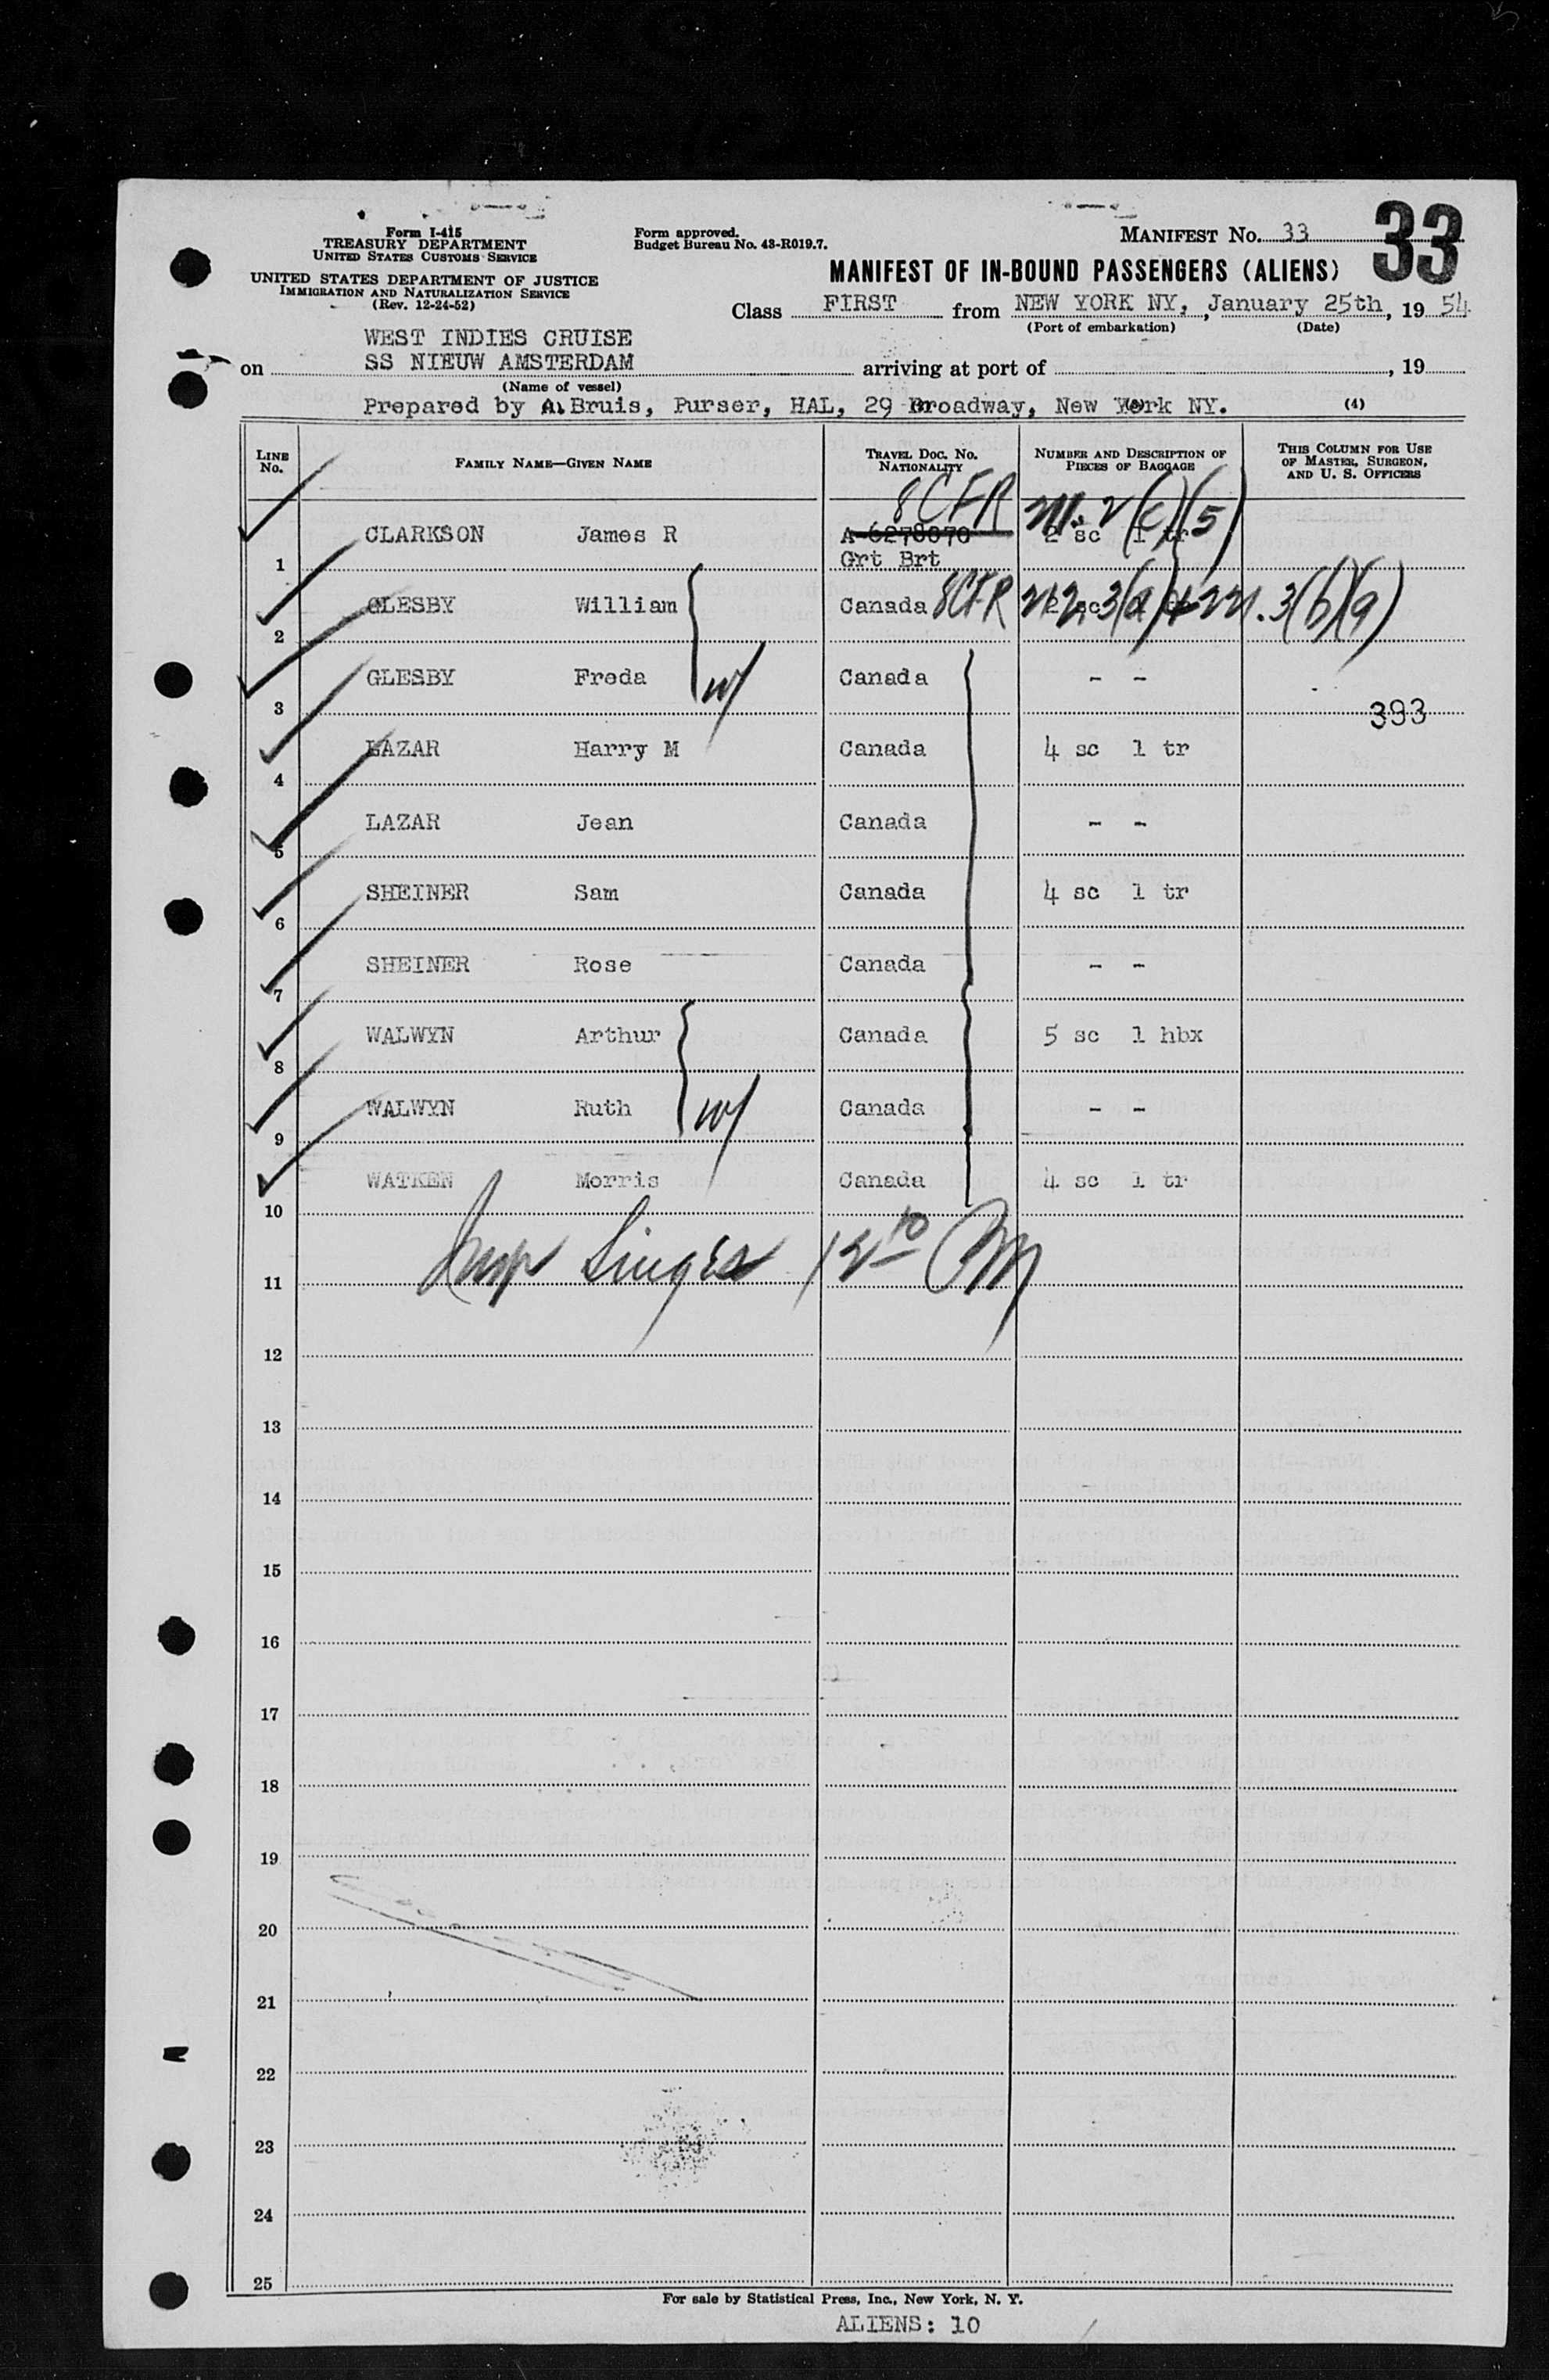 33
Form I-415
TREASURY DEPARTMENT
UNITED STATES CUSTOMS SERVICE
UNITED STATES DEPARTMENT OF JUSTICE
IMMIGRATION AND NATURALIZATION SERVICE
(Rev. 12-24-52)
Form approved.
Budget Bureau No. 43-R019.7.
MANIFEST No. 33
MANIFEST OF IN-BOUND PASSENGERS (ALIENS)
Class FIRST from NEW YORK NY, January 25th, 19 54
(Port of embarkation) (Date)
WEST INDIES CRUISE
on SS NIEUW AMSTERDAM arriving at port of , 19
(Name of vessel)
Prepared by A. Bruis, Purser, HAL, 29 Broadway, New York NY. (4)
LINE No. FAMILY NAME—GIVEN NAME TRAVEL DOC. NO. NATIONALITY NUMBER AND DESCRIPTION OF PIECES OF BAGGAGE THIS COLUMN FOR USE OF MASTER, SURGEON, AND U. S. OFFICERS
8 CFR 211.2(c)(5)
1 CLARKSON James R A-6278070 Grt Brt 2 sc 1 tr
2 GLESBY William Canada 8CFR 212.3(a) + 221.3(b)(a)
3 GLESBY Freda w/ Canada - -
393
4 LAZAR Harry M Canada 4 sc 1 tr
5 LAZAR Jean Canada - -
6 SHEINER Sam Canada 4 sc 1 tr
7 SHEINER Rose Canada - -
8 WALWYN Arthur Canada 5 sc 1 hbx
9 WALWYN Ruth w/ Canada - -
10 WATKEN Morris Canada 4 sc 1 tr
11 Insp 12 10 PM
12
13
14
15
16
17
18
19
20
21
22
23
24
25
For sale by Statistical Press, Inc., New York, N. Y.
ALIENS: 10